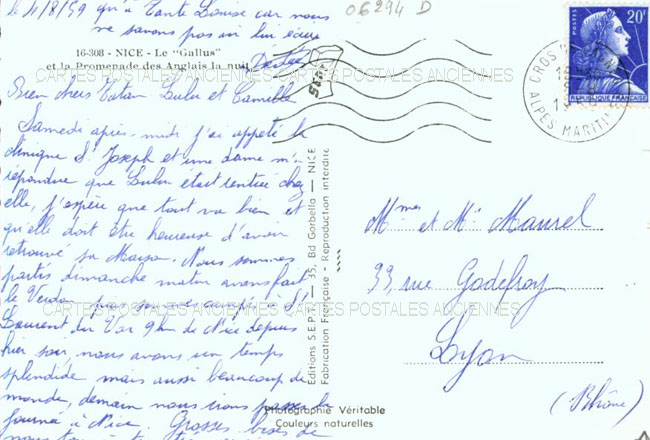 le 4/8/59 qu'à Tante Louise car nous
ne savons pas si lui écrire
06294 D
16-308 - NICE - Le "Gallus"
et la Promenade des Anglais la nuit
CARTES POSTALES ANCIENNES CARTES POSTALES ANCIENNES
Bien chers Tatan Lulu et Camille
Samedi après-midi j'ai appelé la
clinique St Joseph et une dame m'a
répondue que Lulu était rentrée chez
elle, j'espère que tout va bien et
qu'elle doit être heureuse d'avoir
retrouvé sa Maison. Nous sommes
partis dimanche matin avons fait
le Verdon
CARTES POSTALES ANCIENNES CARTES POSTALES ANCIENNES
Laurent du Var 9 km de Nice depuis
hier soir, nous avons un temps
splendide mais aussi beaucoup de
monde, demain nous irons passer la
journée à Nice. Grosses bises de
nous
Editions S.E.P.T. — 35, Bd Gorbella — NICE
Fabrication Française - Reproduction interdite
Photographie Véritable
Couleurs naturelles
POSTES 20F
REPUBLIQUE FRANÇAISE
CROS
ALPES MARITIMES
Mmes et Mr Maurel
33, rue Godefroy
Lyon
(Rhône)